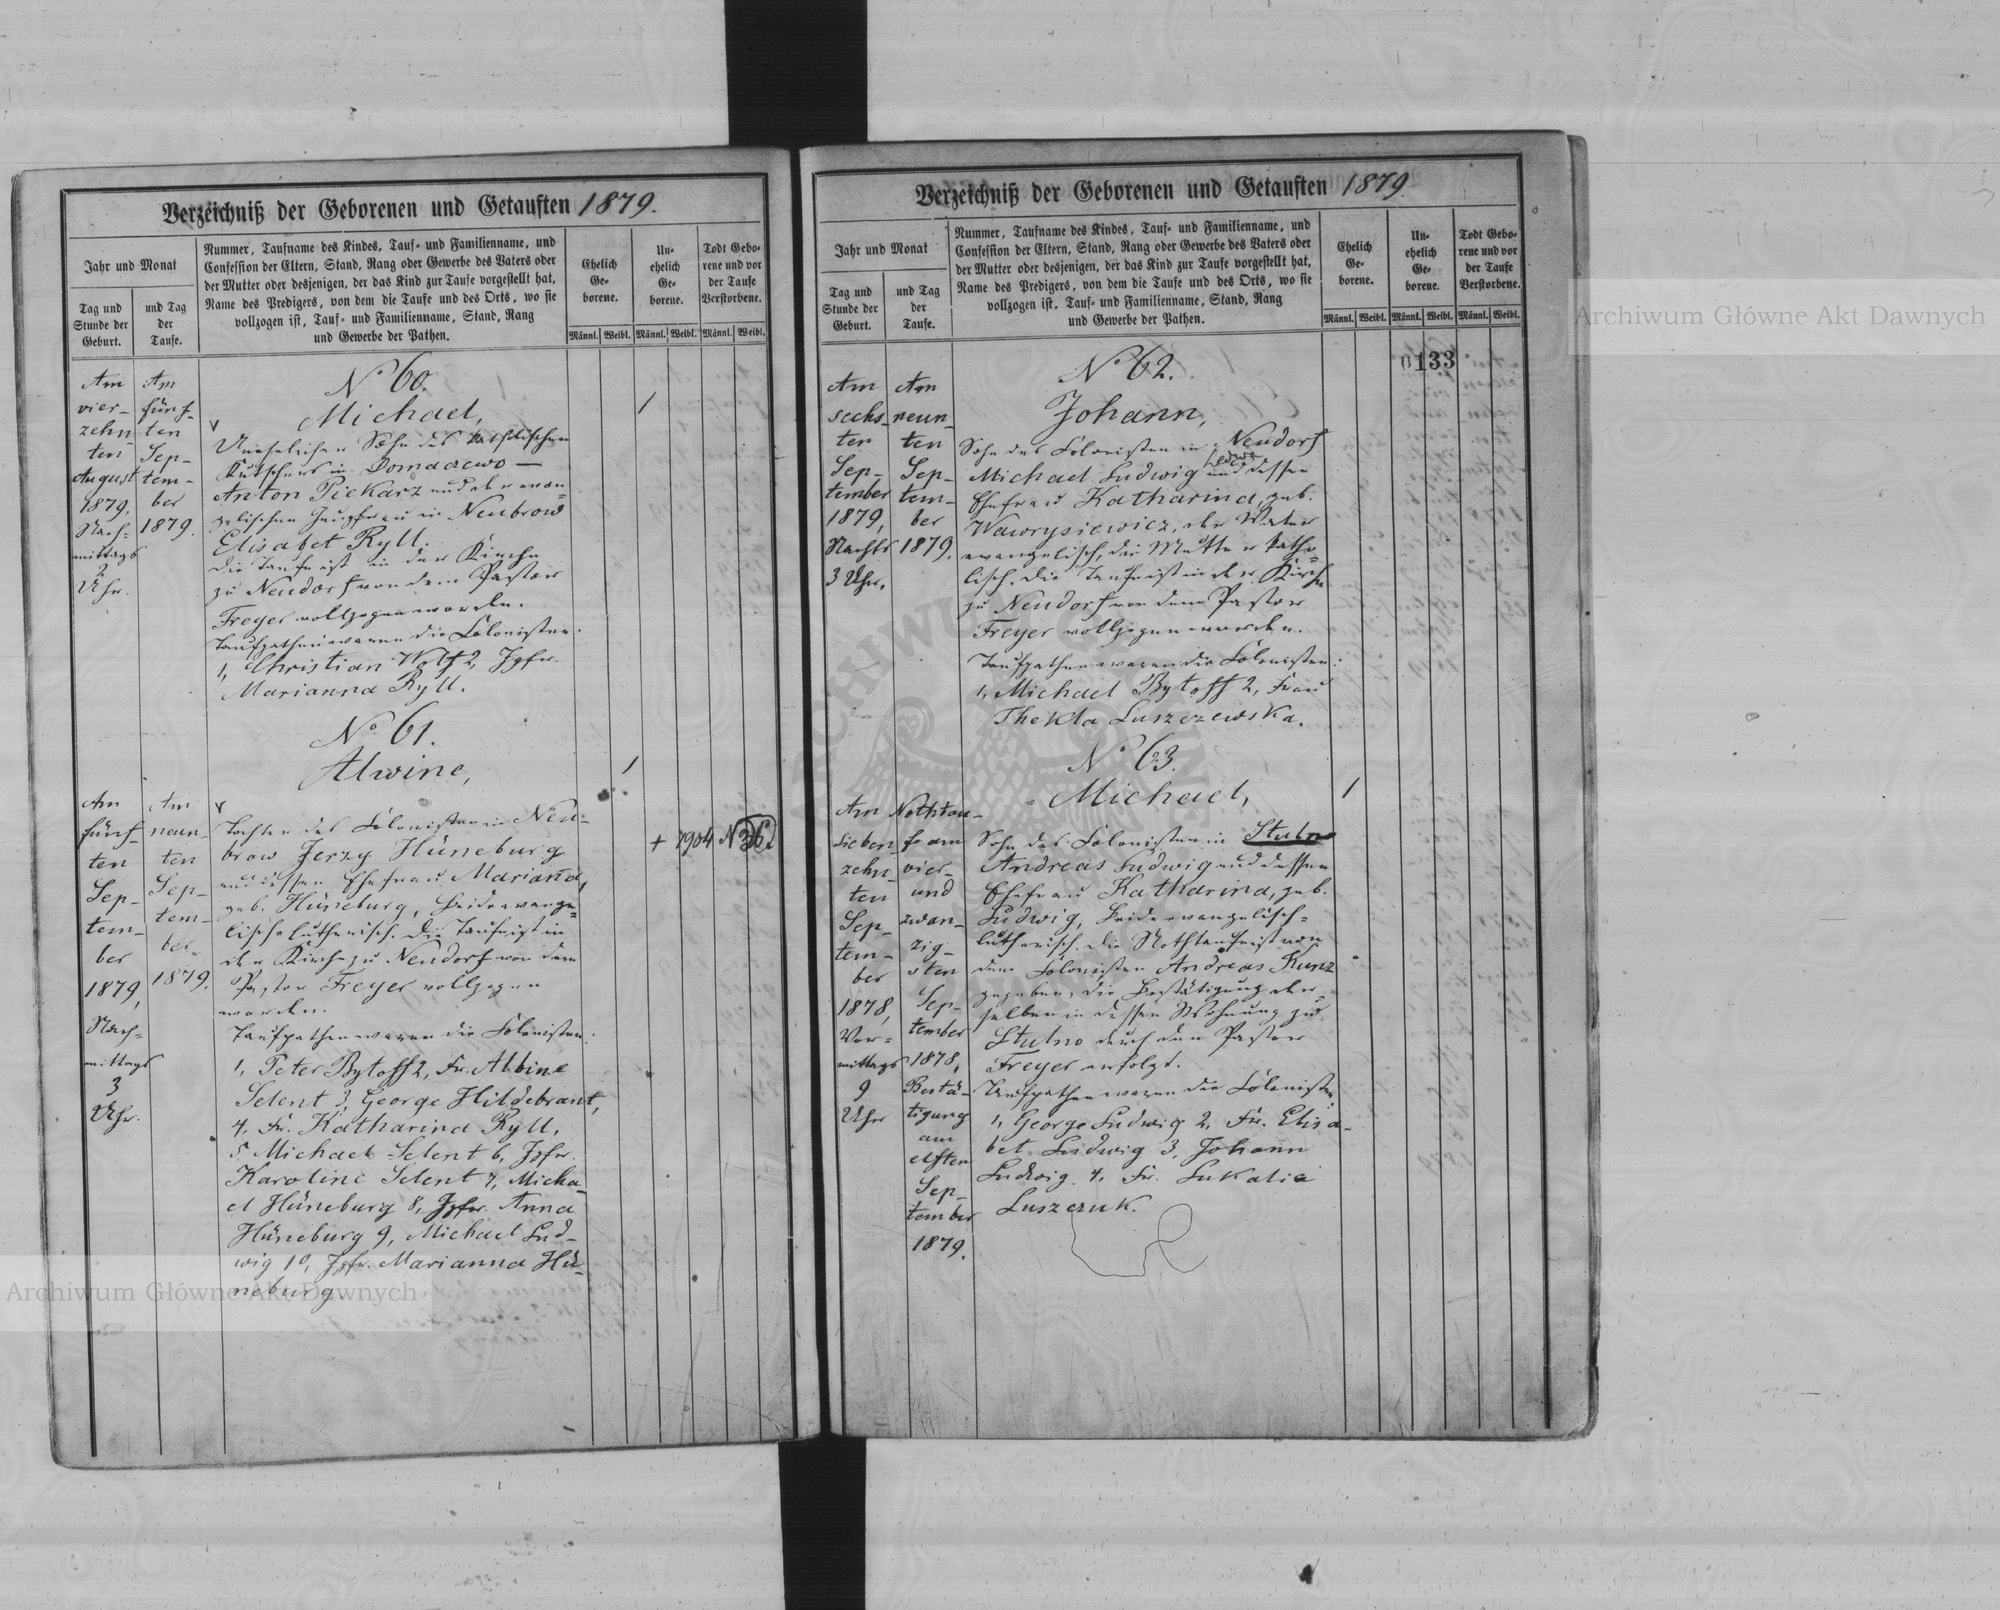 Verzeichniß der Geborenen und Getauften 1879.
Jahr und Monat
Tag und
Stunde der
Geburt.
und Tag
der
Taufe.
Nummer, Taufname des Kindes, Tauf- und Familienname, und
Confession der Eltern, Stand, Rang oder Gewerbe des Vaters oder
der Mutter oder desjenigen, der das Kind zur Taufe vorgestellt hat,
Name des Predigers, von dem die Taufe und des Orts, wo sie
vollzogen ist, Tauf- und Familienname, Stand, Rang
und Gewerbe der Pathen.
Ehelich
Ge-
borene.
Un-
ehelich
Ge-
borene.
Todt Gebo-
rene und vor
der Taufe
Verstorbene.
Männl. Weibl. Männl. Weibl. Männl. Weibl.
Am
vier-
zehn
ten
August
1879,
Nach-
mittags
2
Uhr.
Am
fünf-
ten
Sep-
tem-
ber
1879.
No 60.
Michael,
Unehelicher Sohn des katholischen
Kutschers in Domaczewo —
Anton Piekarz und der evan-
gelischen Jungfrau in Neubrow
Elisabet Ryll.
Die Taufe ist in der Kirche
zu Neudorf von dem Pastor
Freyer vollzogen worden.
Taufpathen waren die Colonisten:
1, Christian Wolf 2, Jgfr.
Marianna Ryll.
1
Am
fünf-
ten
Sep-
tem-
ber
1879,
Nach-
mittags
3
Uhr.
Am
neun-
ten
Sep-
tem-
ber
1879.
No 61.
Alwine,
Tochter des Colonisten in Neu-
brow Jerzy Hüneburg
und dessen Ehefrau Mariana,
geb. Hüneburg, beide evange-
lisch-lutherisch. Die Taufe ist in
der Kirche zu Neudorf von dem
Pastor Freyer vollzogen
worden.
Taufpathen waren die Colonisten:
1, Peter Bytoff 2, Fr. Albine
Selent 3, George Hildebrant,
4, Fr. Katharina Ryll,
5 Michael Selent 6, Jgfr.
Karoline Selent 7, Micha-
el Hüneburg 8, Jgfr. Anna
Hüneburg 9, Michael Lud-
wig 10, Jgfr. Marianna Hü-
neburg.
1
+ 1904 N 36
Verzeichniß der Geborenen und Getauften 1879.
Jahr und Monat
Tag und
Stunde der
Geburt.
und Tag
der
Taufe.
Nummer, Taufname des Kindes, Tauf- und Familienname, und
Confession der Eltern, Stand, Rang oder Gewerbe des Vaters oder
der Mutter oder desjenigen, der das Kind zur Taufe vorgestellt hat,
Name des Predigers, von dem die Taufe und des Orts, wo sie
vollzogen ist, Tauf- und Familienname, Stand, Rang
und Gewerbe der Pathen.
Ehelich
Ge-
borene.
Un-
ehelich
Ge-
borene.
Todt Gebo-
rene und vor
der Taufe
Verstorbene.
Männl. Weibl. Männl. Weibl. Männl. Weibl.
133
Am
sechs-
ten
Sep-
tember
1879,
Nachts
3 Uhr.
Am
neun-
ten
Sep-
tem-
ber
1879.
No 62.
Johann,
Sohn des Colonisten in Neudorf
Michael Ludwig und dessen
Ehefrau Katharina, geb.
Wawrysiewicz, der Vater
evangelisch, die Mutter katho-
lisch. Die Taufe ist in der Kirche
zu Neudorf von dem Pastor
Freyer vollzogen worden.
Taufpathen waren die Colonisten:
1, Michael Bytoff 2, Frau
Thekla Luszczewska.
Am
sieben-
zehn-
ten
Sep-
tem-
ber
1878,
Vor-
mittags
9
Uhr
Nothtau-
fe am
vier-
und
zwan-
zig-
sten
Sep-
tember
1878,
Bestä-
tigung
am
elften
Sep-
tember
1879.
No 63.
Michael,
Sohn des Colonisten in Stulno
Andreas Ludwig und dessen
Ehefrau Katharina, geb.
Ludwig, beide evangelisch-
lutherisch. Die Nothtaufe ist von
dem Colonisten Andreas Kunz
gegeben, die Bestätigung der-
selben in dessen Wohnung zu
Stulno durch den Pastor
Freyer erfolgt.
Taufpathen waren die Colonisten:
1, George Ludwig 2, Fr. Elisa-
bet Ludwig 3, Johann
Ludwig 4, Fr. Eukalia
Luszczuk.
1
Archiwum Główne Akt Dawnych
Archiwum Główne Akt Dawnych